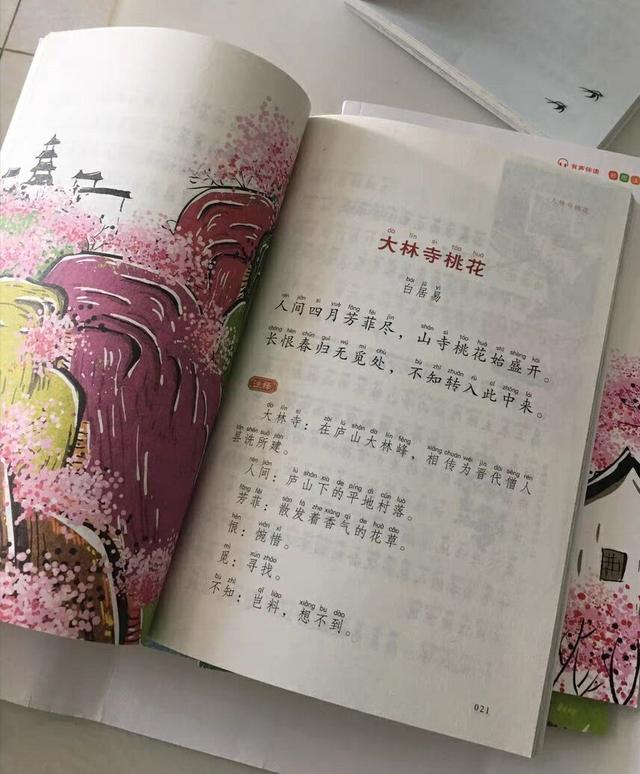 有声伴读
大林寺桃花
dà lín sì táo huā
大林寺桃花
bái jū yì
白居易
rén jiān sì yuè fāng fēi jìn shān sì táo huā shǐ shèng kāi
人间四月芳菲尽，山寺桃花始盛开。
cháng hèn chūn guī wú mì chù bù zhī zhuǎn rù cǐ zhōng lái
长恨春归无觅处，不知转入此中来。
注释
dà lín sì lú shān dà lín fēng xiāng chuán wéi jìn dài sēng rén
大林寺：在庐山大林峰，相传为晋代僧人
tán shēn suǒ jiàn
昙诜所建。
rén jiān lú shān xià de píng dì cūn luò
人间：庐山下的平地村落。
fāng fēi sàn fā zhe xiāng qì de huā cǎo
芳菲：散发着香气的花草。
hèn wǎn xī
恨：惋惜。
mì xún zhǎo
觅：寻找。
bù zhī qǐ liào xiǎng bu dào
不知：岂料，想不到。
021